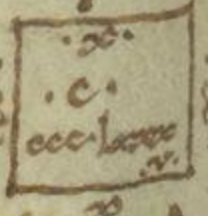 ·x·
·c·
ccc·lxxx
·v·